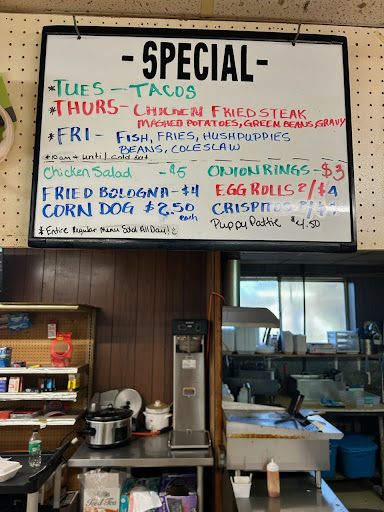 - SPECIAL -
*TUES - TACOS
*THURS- CHICKEN FRIED STEAK
MASHED POTATOES, GREEN BEANS, GRAVY
*FRI - FISH, FRIES, HUSHPUPPIES
BEANS, COLESLAW
*10am + until sold out
Chicken Salad - $5 ONION RINGS - $3
FRIED BOLOGNA - $4 EGG ROLLS 2/$4
CORN DOG $2.50 each CRISPITOS 2/$4
* Entire Regular Menu Sold All Day! Puppy Pattie $4.50
Iced Tea